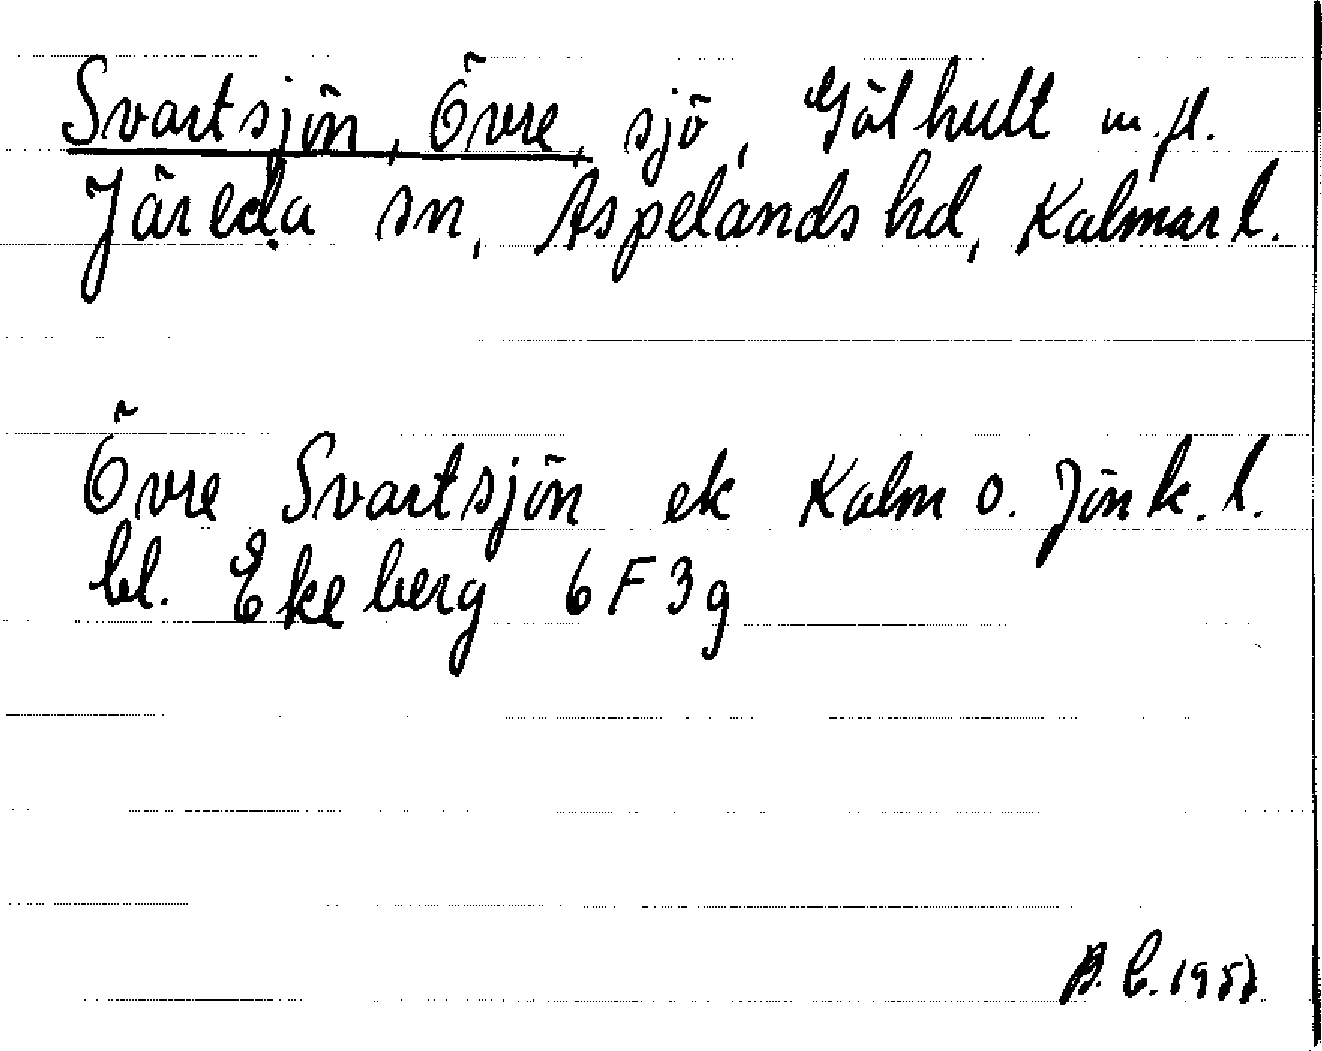 Svartsjön, Övre, sjö, Gölhult m.fl.
Järeda sn, Aspelands hd, Kalmar l.
Övre Svartsjön ek Kalm o. Jönk. l.
bl. Ekeberg 6F3g
B.E.